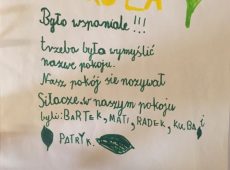 Było wspaniale!!!
trzeba była wymyślić
nazwe pokoju.
Nasz pokój się nozywał
Siłacze.w naszym pokoju
byli: BARTEK, MATI, RADEK, KUBA i
PATRYK.